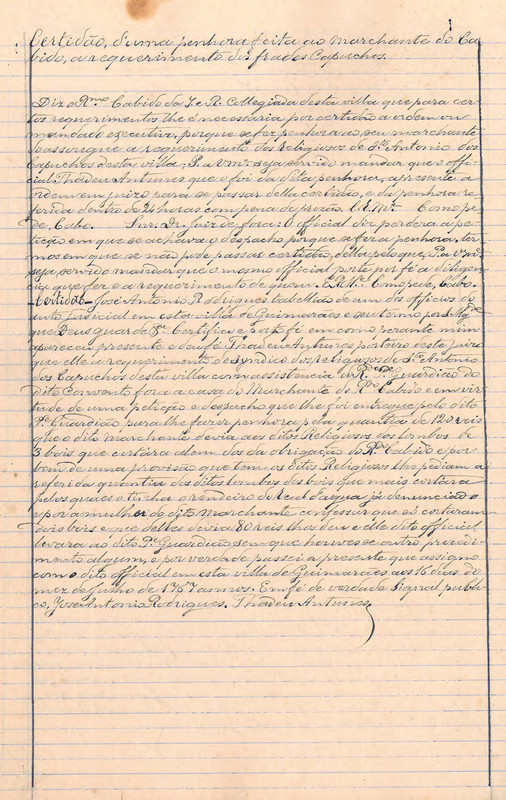 Certidão, d'uma penhora feita ao Marchante do Ca-
bido, a requerimento dos frades Capuchos.
Diz o Rmo Cabido da I. e R. Collegiada desta villa que para cer-
tos requerimentos lhe é necessaria por certidão a ordem ou
mandado executivo, porque se fez penhora ao seu marchante
do assougue a requerimento dos Religiosos de Sto Antonio dos
Capuchos desta villa, P. a Vmce seja servido mandar que o offi-
cial Thadeu Antunes que o foi da dita penhora, apresente a
ordem em juizo para se passar della certidão, e da penhora re-
ferida dentro de 24 horas com pena de prizão. E. R. Mce Como pe-
de, Cabo. Snr. Dr. Juiz de fora: O official diz perdera a pe-
tição em que se achava o despacho porque se fez a penhora, ter-
mos em que se não pode passar certidão, della pelo que, P. a Vmce
seja servido mandar que o mesmo official porte por fé a diligen-
cia que fez e a requerimento de quem. E. R. Mce Como pede, Cabo.
Certidão José Antonio Rodrigues Tabellião de um dos officios do
auto judicial em esta villa de Guimarães e seu termo por Mag.de
que Deus guarde Ea Certifico e porto fé em como perante mim
apareceu presente e dou fé Thadeu Antunes porteiro deste juizo
que elle a requerimento do Syndico dos religiosos de Sto Antonio
dos Capuchos desta villa com assistencia do Rdo Pe Guardião do
dito Convento fora a casa do Marchante do Rdo Cabido e em vir-
tude de uma petição e despacho que lhe foi entregue pelo dito
Pe Guardião para lhe fazer penhora pela quantia de 120 reis
que o dito marchante devia aos ditos Religiosos dos lombos de
3 bois que cortára alem dos da obrigação do Rdo Cabido e por
bem de uma provisão que tem os ditos Religiosos lhe pediam a
referida quantia dos ditos lombos dos bois que mais cortára
pelos quaes o tinha o rendeiro do real d'agua já denunciado
e por a mulher do dito Marchante confessar que só cortaram
dois bois e que delles devia 80 reis lhos deu e elle dito official
levara ao dito Pe Guardião sem que houvesse outro procedi-
mento algum, e por verdade passei a presente que assigno
com o dito official em esta villa de Guimarães aos 16 dias do
mez de Junho de 1767 annos. Em fé de verdade Signal publi-
co, José Antonio Rodrigues, Thadeu Antunes